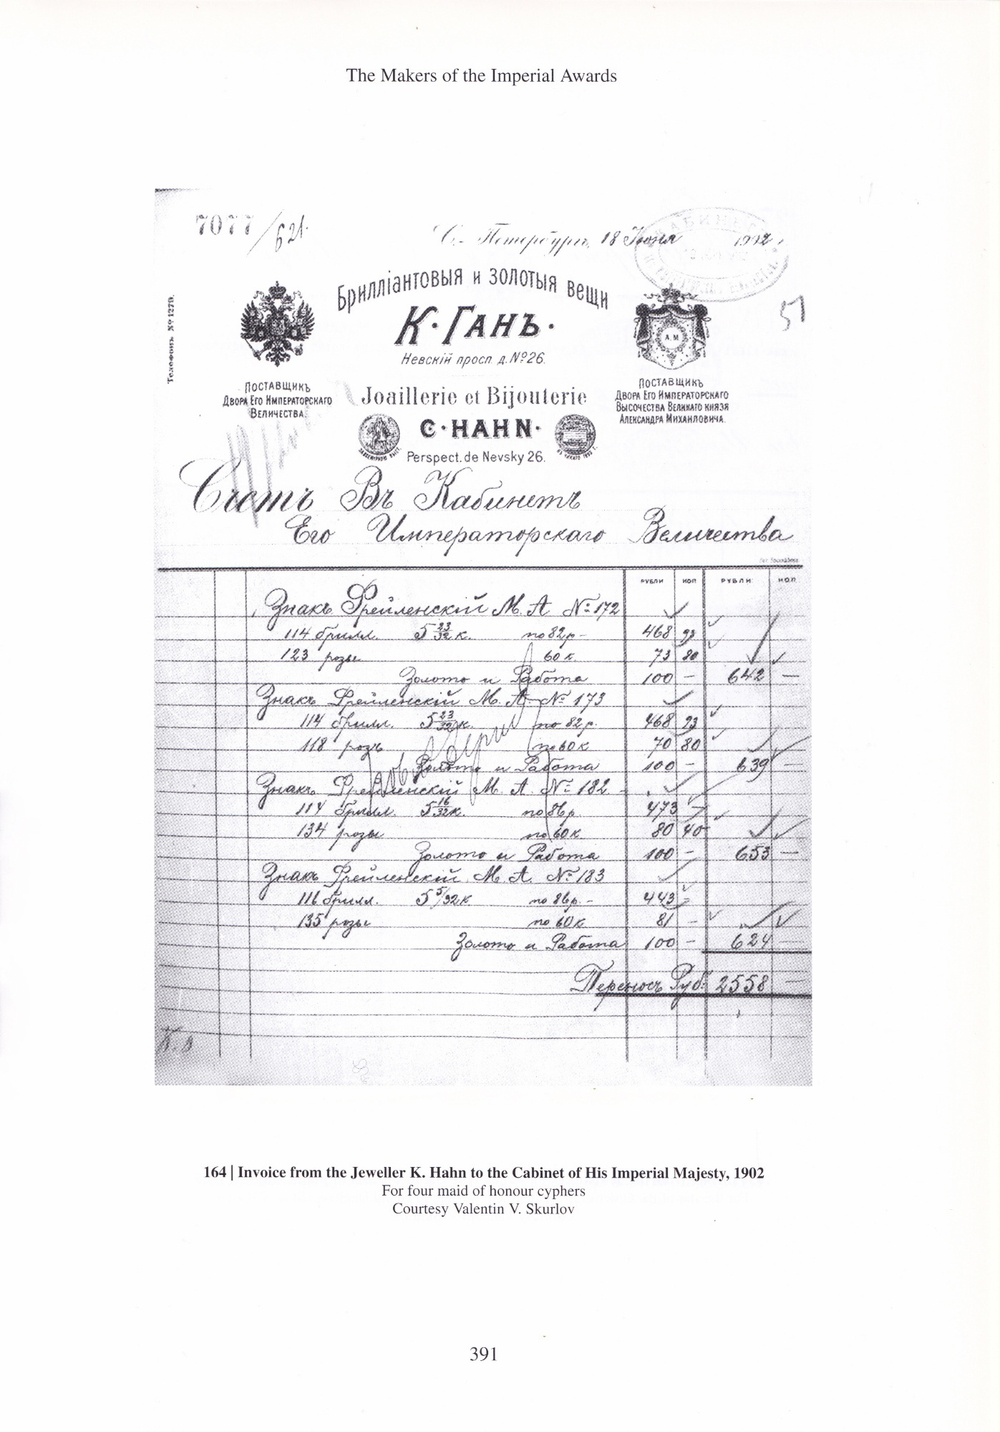 The Makers of the Imperial Awards
7077/621
С. Петербургъ, 18 Іюня 1902
Телефонъ № 1279.
Брилліантовыя и золотыя вещи
К·ГАНЪ·
Невскій просп д. №26.
51
А.М
ПОСТАВЩИКЪ
ДВОРА ЕГО ИМПЕРАТОРСКАГО
ВЕЛИЧЕСТВА.
ПОСТАВЩИКЪ
ДВОРА ЕГО ИМПЕРАТОРСКАГО
ВЫСОЧЕСТВА ВЕЛИКАГО КНЯЗЯ
АЛЕКСАНДРА МИХАИЛОВИЧА.
Joaillerie et Bijouterie
C·HAHN·
Perspect. de Nevsky 26.
Счетъ Въ Кабинетъ
Его Императорскаго Величества
РУБЛИ КОП РУБЛИ КОП
Знакъ Фрейленскій М. А №172
114 брилл. 5 23/32 к. по 82 р - 468 93
123 розы 60 к. 73 80
Золото и Работа 100 - 642 -
Знакъ Фрейленскій М. А. №173
114 брилл. 5 23/32 к. по 82 р. 468 93
118 розъ по 60 к 70 80
Золото и Работа 100 - 639 -
Знакъ Фрейленскій М. А. №182
114 брилл. 5 16/32 к. по 86 р. 473 -
134 розы по 60 к 80 40
Золото и Работа 100 - 653 -
Знакъ Фрейленскій М. А. №183
116 брилл. 5 5/32 к по 86 р. - 443 -
135 розы по 60 к 81 -
Золото и Работа 100 - 624 -
Переносъ Руб. 2558 -
164 | Invoice from the Jeweller K. Hahn to the Cabinet of His Imperial Majesty, 1902
For four maid of honour cyphers
Courtesy Valentin V. Skurlov
391